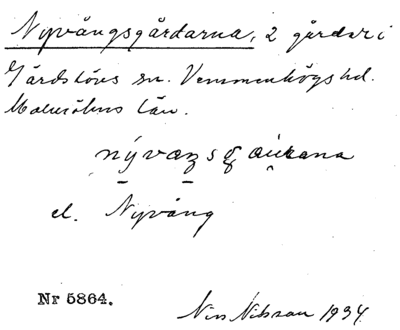 Nyvångsgårdarna, 2 gårdar i
Gärdslövs sn. Vemmenhögs hd.
Malmöhus län.
el. Nyvång
Nr 5864.
Nils Nilsson 1934.